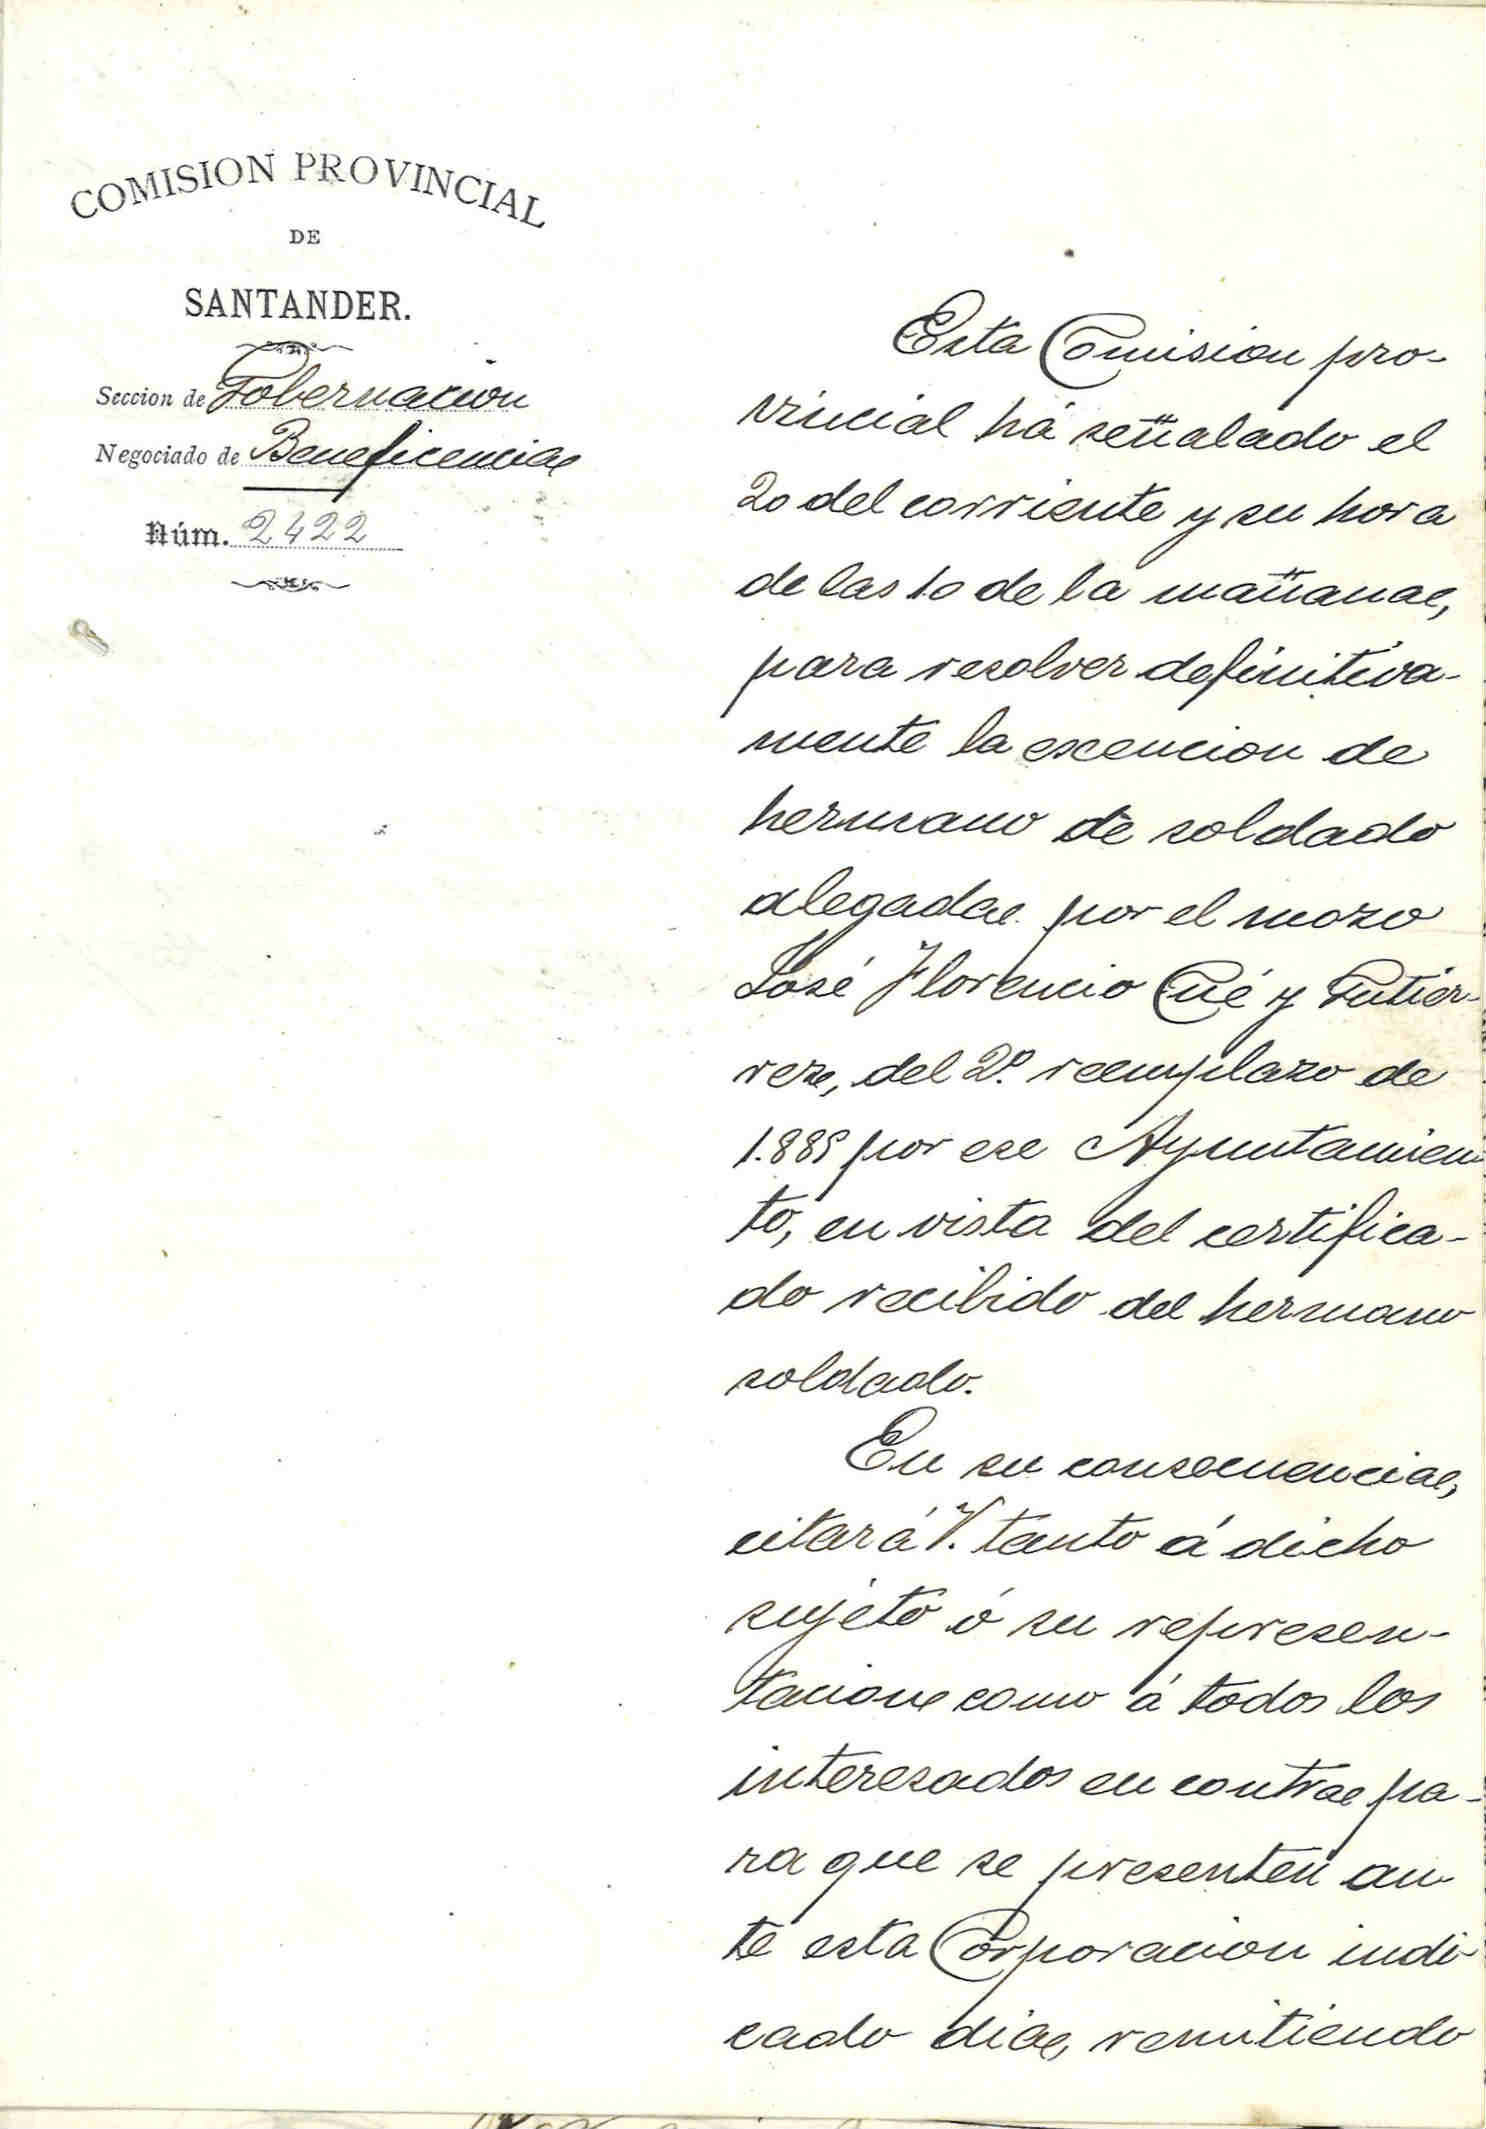 COMISION PROVINCIAL
DE
SANTANDER.
Seccion de Gobernacion
Negociado de Beneficencia
Núm. 2422
Esta Comision pro-
vincial há señalado el
20 del corriente y su hora
de las 10 de la mañana,
para resolver definitiva-
mente la escencion de
hermano de soldado
alegada por el mozo
José Florencio Cué y Gutier-
rez, del 2º. reemplazo de
1.885 por ese Ayuntamien
to, en vista del certifica-
do recibido del hermano
soldado.
En su consecuencia,
citará V. tanto á dicho
sujeto ó su represen-
tacion como á todos los
interesados en contra pa-
ra que se presenten an-
te esta Corporacion indi-
cado dia, remitiendo